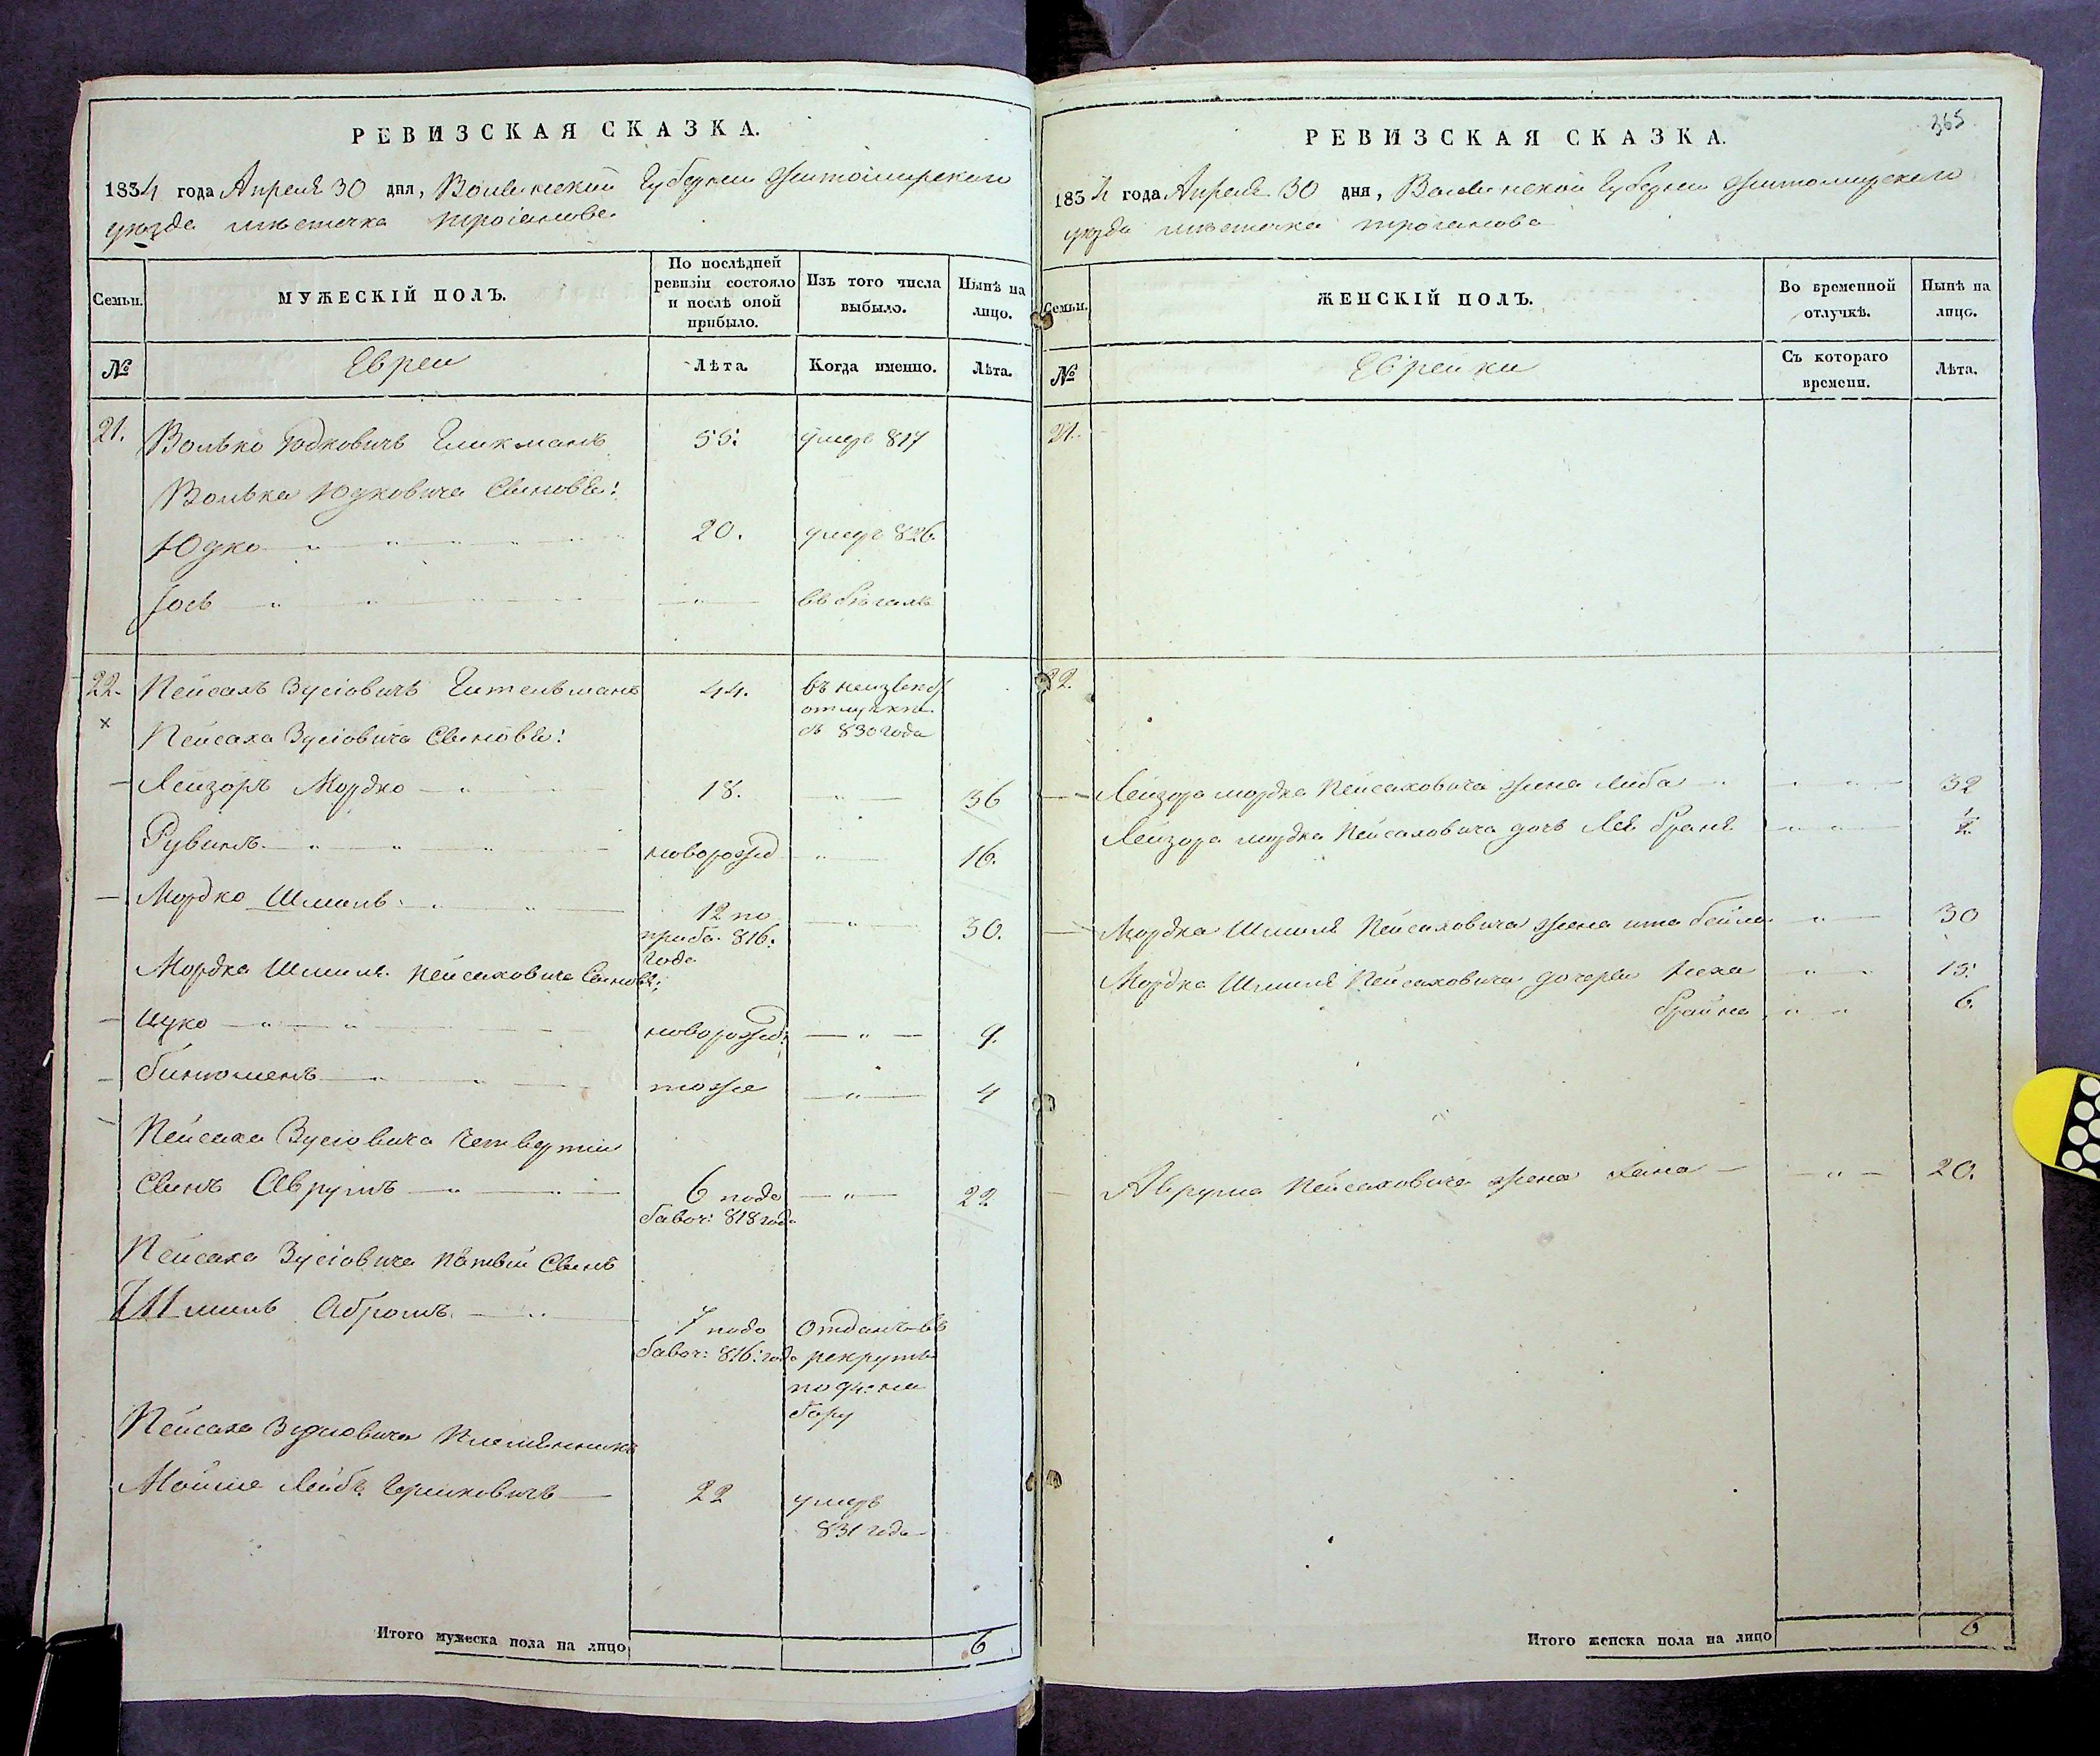 РЕВИЗСКАЯ СКАЗКА.
1834 года Апреля 30 дня, Волынской Губернии Житомирскаго
уезда местечка Троіанова
Семьи.
МУЖЕСКІЙ ПОЛЪ.
По послѣдней ревизіи состояло и послѣ оной прибыло.
Изъ того числа выбыло.
Нынѣ на лицо.
№
Евреи
Лѣта.
Когда именно.
Лѣта.
21. Волько Юдковичъ Гликманъ 55. умеръ 817
Волька Юдковича Сыновья:
Юдко 20. умеръ 826.
Іось въ бегахъ
22. Пейсахъ Зусіовичъ Гительманъ 44. въ неизвест
отлучке
съ 830 года
× Пейсаха Зусіовича Сыновья:
Лейзоръ Мордко 18. 36
Рувинъ новорожд 16.
Мордко Шмиль 12 по 30.
приба. 816:
года
Мордка Шмиля Пейсаховича Сыновья:
Ицко новорожд: 9.
Бинюменъ тоже 4
Пейсаха Зусіовича четвертый
Сынъ Аврумъ 6 подо 22.
бавоч: 818 года
Пейсаха Зусіовича пятый Сынъ
Шмиль Абрамъ 7 подо Отданъ въ
бавоч: 816: года рекруты
по 94: на
бору
Пейсаха Зусіовича Племянникъ
Мойше Лейбъ Гершковичъ 22 умеръ
831 года
Итого мужеска пола на лицо 6
365
РЕВИЗСКАЯ СКАЗКА.
1834 года Апреля 30 дня, Волынской Губернии Житомирскаго
уезда местечка Троіанова
Семьи.
ЖЕНСКІЙ ПОЛЪ.
Во временной отлучкѣ.
Нынѣ на лицо.
№
Еврейки
Съ котораго времени.
Лѣта.
21.
22.
Лейзора Мордка Пейсаховича жена Либа 32
Лейзора Мордка Пейсаховича дочь Лея Браня
Мордка Шмиля Пейсаховича жена Ита Бейла 30
Мордка Шмиля Пейсаховича дочери Неха 15:
Брайна 6.
Аврума Пейсаховича жена Хана 20.
Итого женска пола на лицо 6